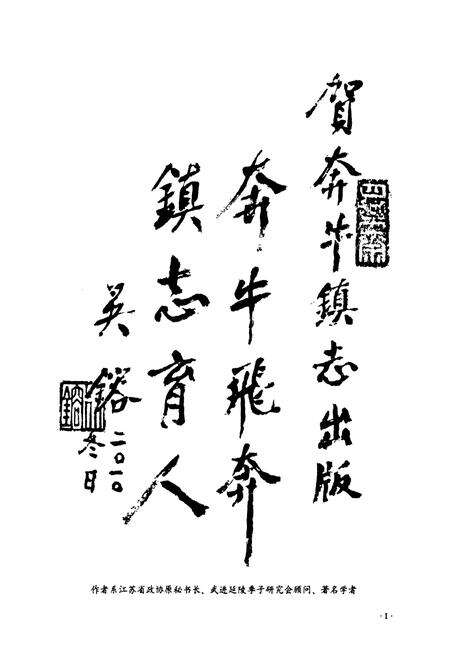 賀奔牛鎮志出版
奔牛飛奔
鎮志育人
吴鎔
二〇一〇
冬日
作者系江苏省政协原秘书长、武进延陵季子研究会顾问、著名学者
·1·